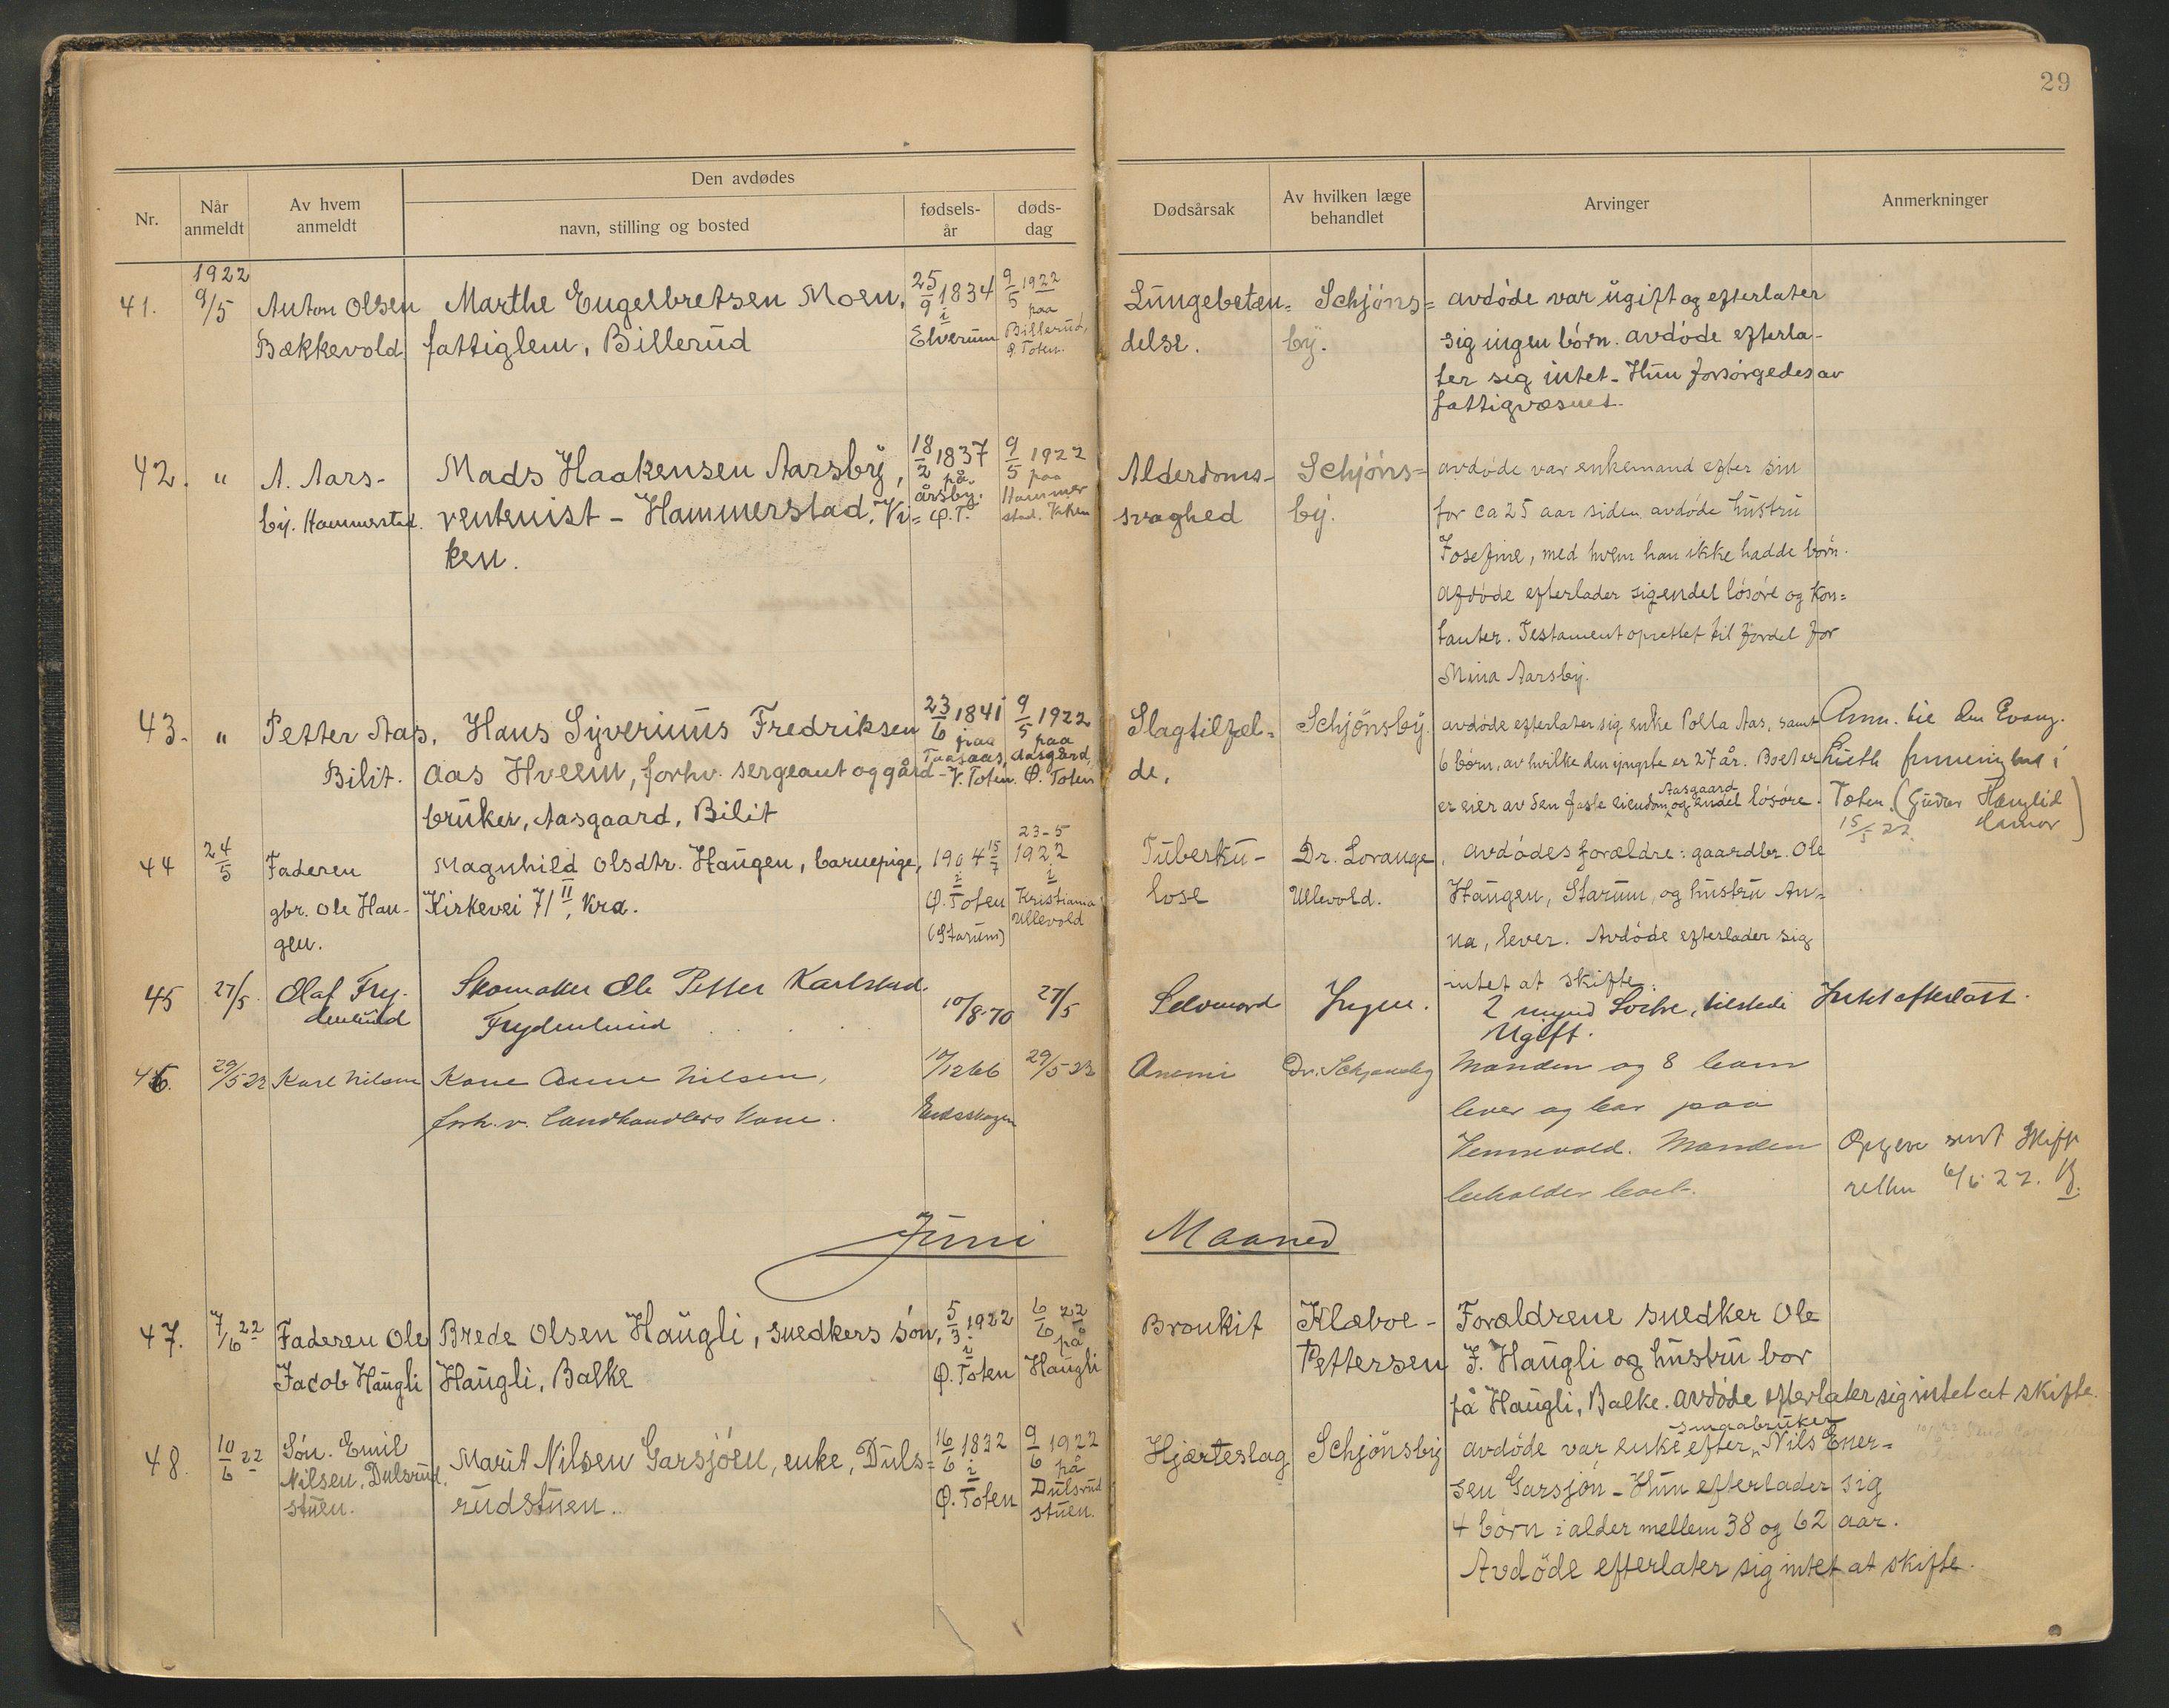 29
Den avdødes
Nr.
Når anmeldt
Av hvem anmeldt
navn, stilling og bosted
fødsels-år
døds-dag
Dødsårsak
Av hvilken læge behandlet
Arvinger
Anmerkninger
1922
41. 9/5 Anton Olsen Marthe Engelbretsen Moen, 25/9 1834 i Elverum 9/5 1922 paa Billerud, Ø. Toten.
Bækkevold fattiglem, Billerud
Lungebeten= Schjöns= avdöde var ugift og efterlater
delse. by. sig ingen börn. avdöde efterla-
ter sig intet - Hun forsörgedes av
fattigvæsnet.
42. " A. Aars- Mads Haakensen Aarsby, 18/2 1837 på årsby. Ø.T. 9/5 1922 paa Hammerstad. Viken
by. Hammerstad. rentenist - Hammerstad. Vi=
ken.
Alderdoms- Schjöns= avdöde var enkemand efter sin
svaghed by. for ca 25 aar siden avdöde hustru
Josefine, med hvem han ikke hadde börn.
Afdöde efterlader sig endel lösöre og kon=
tanter. Testament oprettet til fordel for
Mina Aarsby.
43. " Petter Aas, Hans Syverinus Fredriksen 23/6 1841 paa Taasaas, V. Toten. 9/5 1922 paa Aasgård, Ø. Toten
Bilit. Aas Hveem, forhv. sergeant og gård-
bruker, Aasgaard, Bilit
Slagtilfæl= Schjönsby. avdöde efterlater sig enke Polla Aas, samt Anm. til den Evang.
de. 6 börn, av hvilke den yngste er 27 år. Boet er Luth i
er eier av den faste eiendom Aasgaard og endel lösöre. Toten. (Gudar Hamar)
15/5 22.
44 24/5 Faderen Magnhild Olsdtr. Haugen, barnepige, 1904 15/7 i Ø. Toten (Starum) 23-5 1922 i Kristiania Ullevold
gbr. Ole Hau- Kirkevei 71 II, Kra.
gen.
Tuberku- Dr. Lorange, avdödes forældre: gaardbr. Ole
lose Ullevold. Haugen, Starum, og hustru An=
na, lever. Avdöde efterlader sig
intet at skifte.
45 27/5. Olaf Fry- Skomaker Ole Petter Karlstad. 10/8-70 27/5
denlund Frydenlund
Selvmord Ingen. 2 mynd Söstre, tilstede Intet efterlatt.
Ugift.
46. 29/5 22 Karl Nilsen Kone Anne Nilsen, 10/12 66 29/5 22
forh.v. landhandlers kone. Eidsskogen
Anemi Dr. Schjønsby Manden og 8 barn
lever og bor paa
Vennevold. Manden Opgave sent Skifte
beholder boet. retten 6/6 22. B.
Juni Maaned
47. 7/6 22 Faderen Ole Brede Olsen Haugli, snedkers sön, 5/3 1922 i Ø. Toten 6/6 22 på Haugli
Jacob Haugli Haugli, Balke
Bronkit Klæboe- Forældrene snedker Ole
Pettersen J. Haugli og hustru bor
på Haugli, Balke. Avdöde efterlater sig intet at skifte.
48. 10/6 22 Sön. Emil Marit Nilsen Garsjöen, enke, Duls= 16/6 1832 i Ø. Toten 9/6 1922 på Dulsrudstuen.
Nilsen, Dulsrud rudstuen.
stuen.
Hjerteslag Schjönsby avdöde var enke efter smaabruker Nils Ener=
sen Garsjön - Hun efterlader sig
4 börn i alder mellem 38 og 62 aar.
Avdöde efterlater sig intet at skifte.